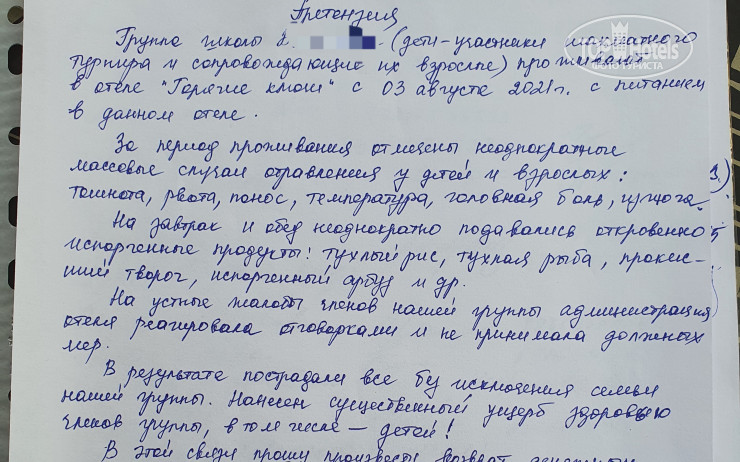 Претензия
Группа школы г. (дети-участники шахматного
турнира и сопровождающие их взрослые) проживает
в отеле "Горячие ключи" с 03 августа 2021г. с питанием
в данном отеле.
За период проживания отмечены неоднократные
массовые случаи отравления у детей и взрослых: 1)
тошнота, рвота, понос, температура, головная боль, изжога.
На завтрак и обед неоднократно подавались откровенно
испорченные продукты: тухлый рис, тухлая рыба, прокис-
ший творог, испорченный арбуз и др.
На устные жалобы членов нашей группы администрация
отеля реагировала отговорками и не принимала должных
мер.
В результате пострадали все без исключения семьи
нашей группы. Нанесен существенный ущерб здоровью
членов группы, в том числе — детей!
В этой связи прошу произвести возврат
TopHotels
ФОТО ТУРИСТА